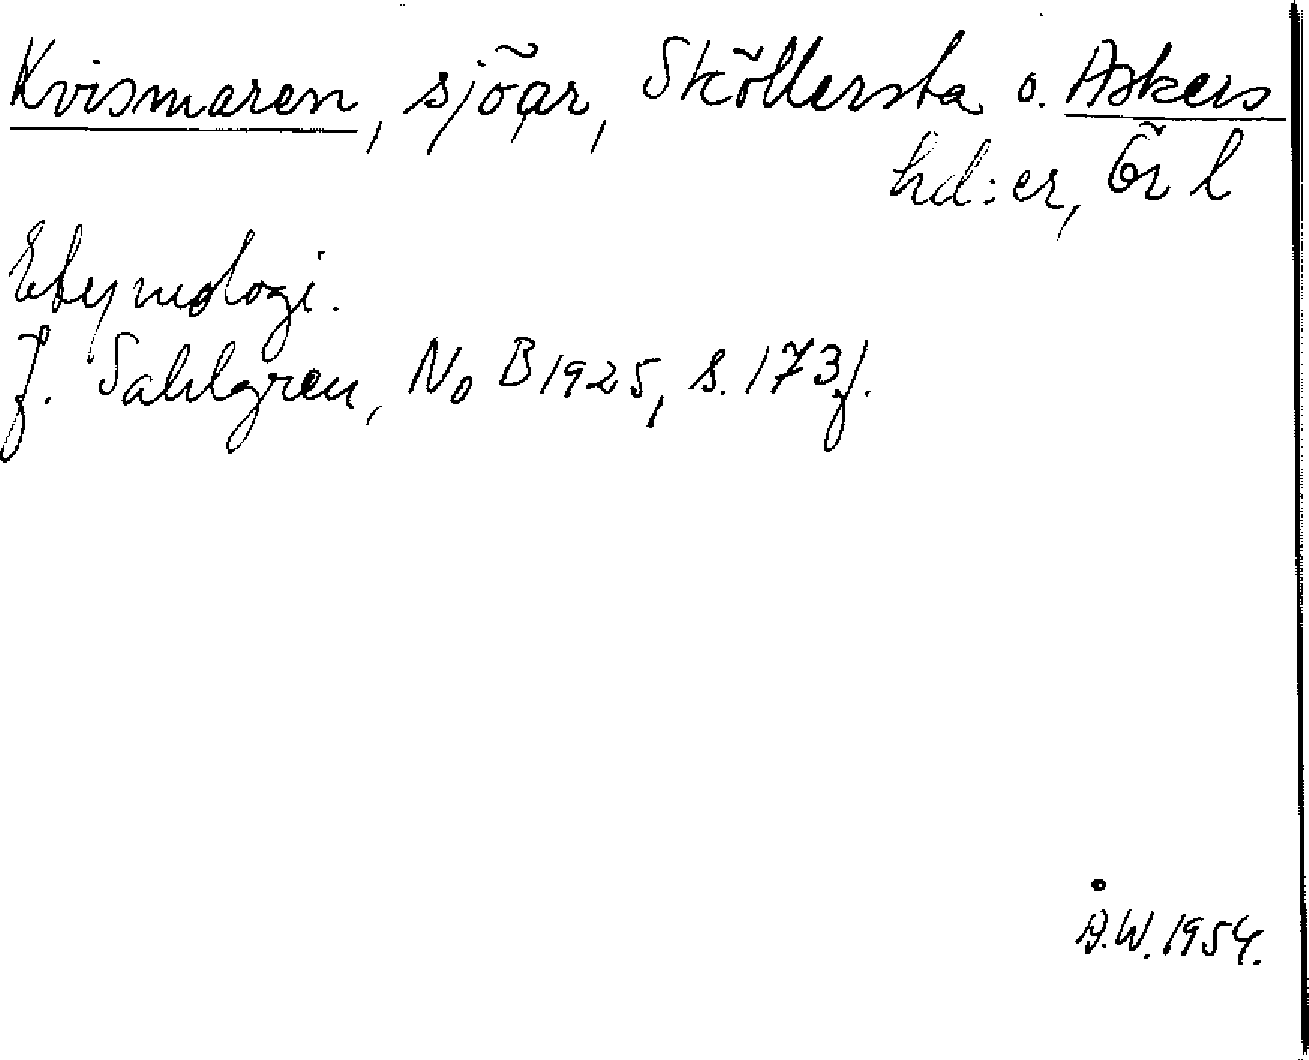 Kvismaren, sjöar, Sköllersta o. Askers
hd:er, Ör l
Etymologi.
J. Sahlgren, NoB 1925, s. 173f.
Å.W. 1954.